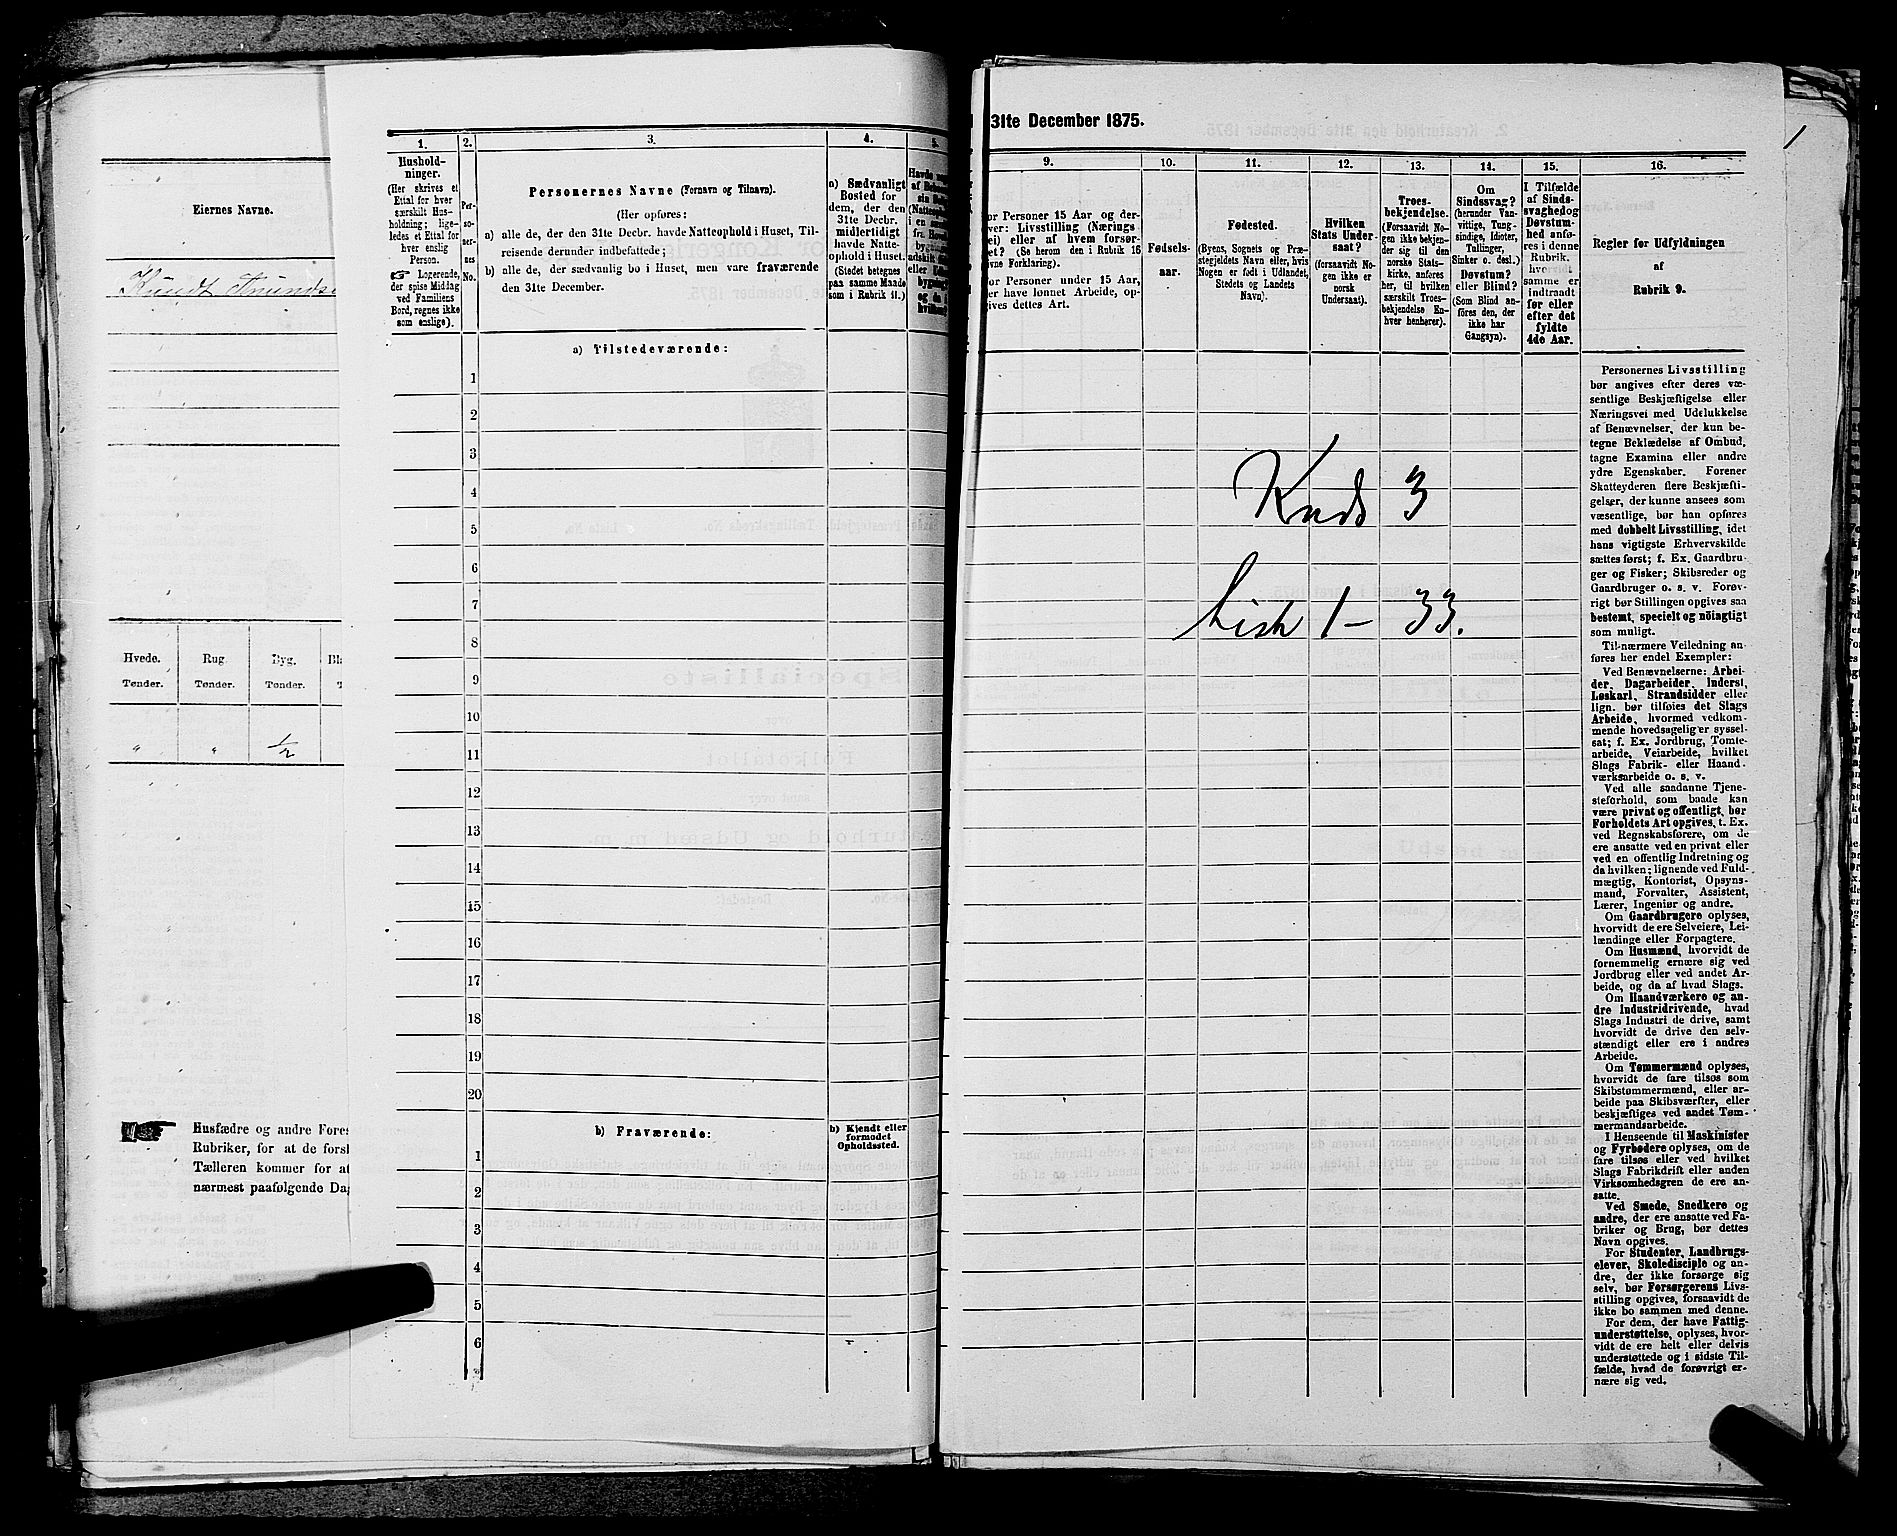 Eiernes Navne.
Hvede.
Tønder.
Rug
Tønder.
Byg.
Tønder.
"
"
1/2
Husfædre og andre Fores
Rubriker, for at de forsk
Tælleren kommer for at
nærmest paafølgende Dag
1.
Hushold-
ninger.
(Her skrives et
Ettal for hver
særskilt Hus-
holdning; lige-
ledes et Ettal for
hver enslig
Person.
☞ Logerende,
der spise Middag
ved Familiens
Bord, regnes ikke
som enslige).
2.
Per-
so-
ner-
nes
No.
3.
Personernes Navne (Fornavn og Tilnavn).
(Her opføres:
a) alle de, der den 31te Decbr. havde Natteophold i Huset, Til-
reisende derunder indbefattede;
b) alle de, der sædvanlig bo i Huset, men vare fraværende
den 31te December.
4.
a) Sædvanligt
Bosted for
dem, der den
31te Decbr.
midlertidigt
havde Natte-
ophold i Huset.
(Stedet betegnes
paa samme Maade
som i Rubrik 11.)
5.
a) Tilstedeværende:
1
2
3
4
5
6
7
8
9
10
11
12
13
14
15
16
17
18
19
20
b) Fraværende:
b) Kjendt eller
formodet
Opholdssted.
1
2
3
4
5
6
31te December 1875.
1
9.
or Personer 15 Aar og der-
ver: Livsstilling (Nærings
ei) eller af hvem forsør-
et? (Se herom den i Rubrik 16
ivne Forklaring).
or Personer under 15 Aar,
er have lønnet Arbeide, op-
gives dettes Art.
10.
Fødsels-
aar.
11.
Fødested.
(Byens, Sognets og Præ-
stegjeldets Navn eller, hvis
Nogen er født i Udlandet,
Stedets og Landets
Navn).
12.
Hvilken
Stats Under
saat?
(forsaavidt No-
gen ikke er
norsk
Undersaat).
13.
Troes-
bekjendelse.
(Forsaavidt No-
gen ikke bekjen-
der sig til den
norske Stats-
kirke, anføres
her, til hvilken
særskilt Troes-
bekjendelse En-
hver henhører).
14.
Om
Sindssvag?
(herunder Van-
vittige, Tung-
sindige, Idioter,
Tullinger,
Sinker o. desl.)
Døvstum?
eller Blind?
(Som Blind an-
føres den, der
ikke har
Gangsyn).
15.
I Tilfælde
af Sinds-
svaghedog
Døvstum-
hed anfø-
res i denne
Rubrik,
hvervidt
samme er
indtraadt
før eller
efter det
fyldte
4de Aar.
16.
Regler for Udfyldningen
af
Rubrik 9.
Kreds 3
Liste 1 – 33.
Personernes Livsstilling
bør angives efter deres væ-
sentlige Beskjæftigelse eller
Næringsvei med Udelukkelse
af Benævnelser, der kun be-
tegne Beklædelse af Ombud,
tagne Examina eller andre
ydre Egenskaber. Forener
Skatteyderen flere Beskjæfti-
gelser, der kunne ansees som
væsentlige, bør han opføres
med dobbelt Livsstilling, idet
hans vigtigste Erhvervskilde
sættes først; f. Ex. Gaardbru-
ger og Fisker; Skibsreder og
Gaardbruger o. s. v. Forøv-
rigt bør Stillingen opgives saa
bestemt, specielt og nöiagtigt
som muligt.
Til nærmere Veiledning an-
føres her endel Exempler:
Ved Benævnelserne: Arbei-
der, Dagarbeider, Inderst,
Løskarl, Strandsidder eller
lign. bør tilføies det Slags
Arbeide, hvormed vedkom-
mende hovedsagelig er syssel-
sat; f. Ex. Jordbrug, Tomte-
arbeide, Veiarbeide, hvilket
Slags Fabrik- eller Haand-
værksarbeide o. s. v.
Ved alle saadanne Tjene-
steforhold, som baade kan
være privat og offentligt, bør
Forholdets Art opgives, t. Ex.
ved Regnskabsførere, om de
ere ansatte ved en privat eller
ved en offentlig Indretning og
da hvilken; lignende ved Fuld-
mægtig, Kontorist, Opsyns-
mand, Forvalter, Assistent,
Lærer, Ingeniør og andre.
Om Gaardbrugere oplyses,
hvorvidt de ere Selveiere, Lei-
lændinge eller Forpagtere.
Om Husmænd, hvorvidt de
fornemmelig ernære sig ved
Jordbrug eller ved andet Ar-
beide, og da af hvad Slags.
Om Haandværkere og an-
dre Industridrivende, hvad
Slags Industri de drive, samt
hvorvidt de drive den selv-
stændigt eller ere i andres
Arbeide.
Om Tømmermænd oplyses,
hvorvidt de fare tilsøs som
Skibstømmermænd, eller ar-
beide paa Skibsværfter, eller
beskjæftiges ved andet Tøm-
mermandsarbeide.
I Henseende til Maskinister
og Fyrbødere oplyses, om de
fare tilsøs eller ved hvilket
Slags Fabrikdrift eller anden
Virksomhedsgren de ere an-
satte.
Ved Smede, Snedkere og
andre, der ere ansatte ved Fa-
briker og Brug, bør dettes
Navn opgives.
For Studenter, Landbrugs-
elever, Skoledisciple og an-
dre, der ikke forsørge sig
selv, bør Forsørgerens Livs-
stilling opgives, forsaavidt de
ikke bo sammen med denne.
For dem, der have Fattig-
understøttelse, oplyses, hvor-
vidt de ere helt eller delvis
understøttede og i sidste Til-
fælde, hvad de forøvrigt er-
nære sig ved.